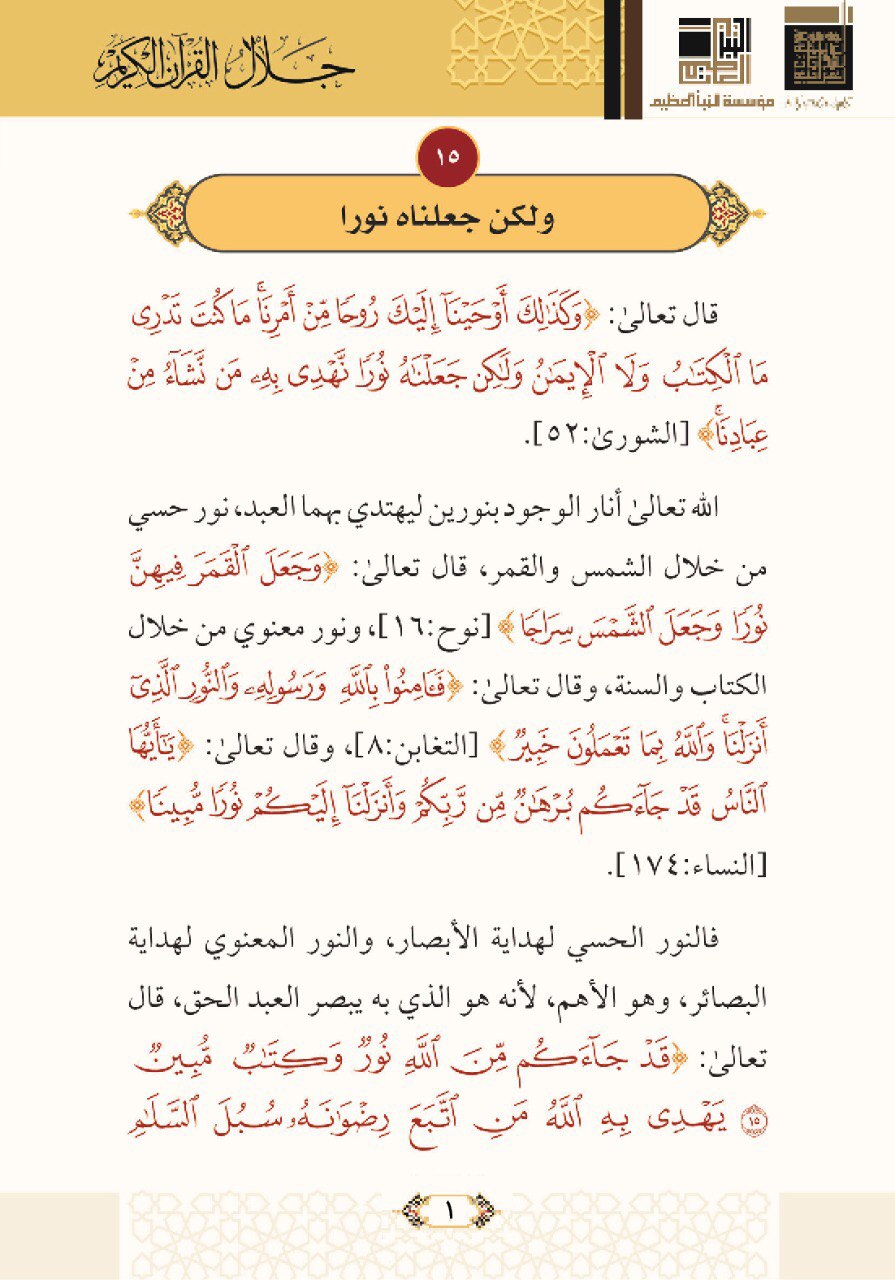 جلال القرآن الكريم
النبأ العظيم
مؤسسة النبأ العظيم
١٥
ولكن جعلناه نورا
قال تعالىٰ: ﴿وَكَذَٰلِكَ أَوْحَيْنَآ إِلَيْكَ رُوحًا مِّنْ أَمْرِنَاۚ مَا كُنتَ تَدْرِى
مَا ٱلْكِتَٰبُ وَلَا ٱلْإِيمَٰنُ وَلَٰكِن جَعَلْنَٰهُ نُورًا نَّهْدِى بِهِۦ مَن نَّشَآءُ مِنْ
عِبَادِنَاۚ﴾ [الشورىٰ:٥٢].
الله تعالىٰ أنار الوجود بنورين ليهتدي بهما العبد، نور حسي
من خلال الشمس والقمر، قال تعالىٰ: ﴿وَجَعَلَ ٱلْقَمَرَ فِيهِنَّ
نُورًا وَجَعَلَ ٱلشَّمْسَ سِرَاجًا﴾ [نوح:١٦]، ونور معنوي من خلال
الكتاب والسنة، وقال تعالىٰ: ﴿فَـَٔامِنُوا۟ بِٱللَّهِ وَرَسُولِهِۦ وَٱلنُّورِ ٱلَّذِىٓ
أَنزَلْنَاۚ وَٱللَّهُ بِمَا تَعْمَلُونَ خَبِيرٌ﴾ [التغابن:٨]، وقال تعالىٰ: ﴿يَٰٓأَيُّهَا
ٱلنَّاسُ قَدْ جَآءَكُم بُرْهَٰنٌ مِّن رَّبِّكُمْ وَأَنزَلْنَآ إِلَيْكُمْ نُورًا مُّبِينًا﴾
[النساء:١٧٤].
فالنور الحسي لهداية الأبصار، والنور المعنوي لهداية
البصائر، وهو الأهم، لأنه هو الذي به يبصر العبد الحق، قال
تعالىٰ: ﴿قَدْ جَآءَكُم مِّنَ ٱللَّهِ نُورٌ وَكِتَٰبٌ مُّبِينٌ
١٥ يَهْدِى بِهِ ٱللَّهُ مَنِ ٱتَّبَعَ رِضْوَٰنَهُۥ سُبُلَ ٱلسَّلَٰمِ
١